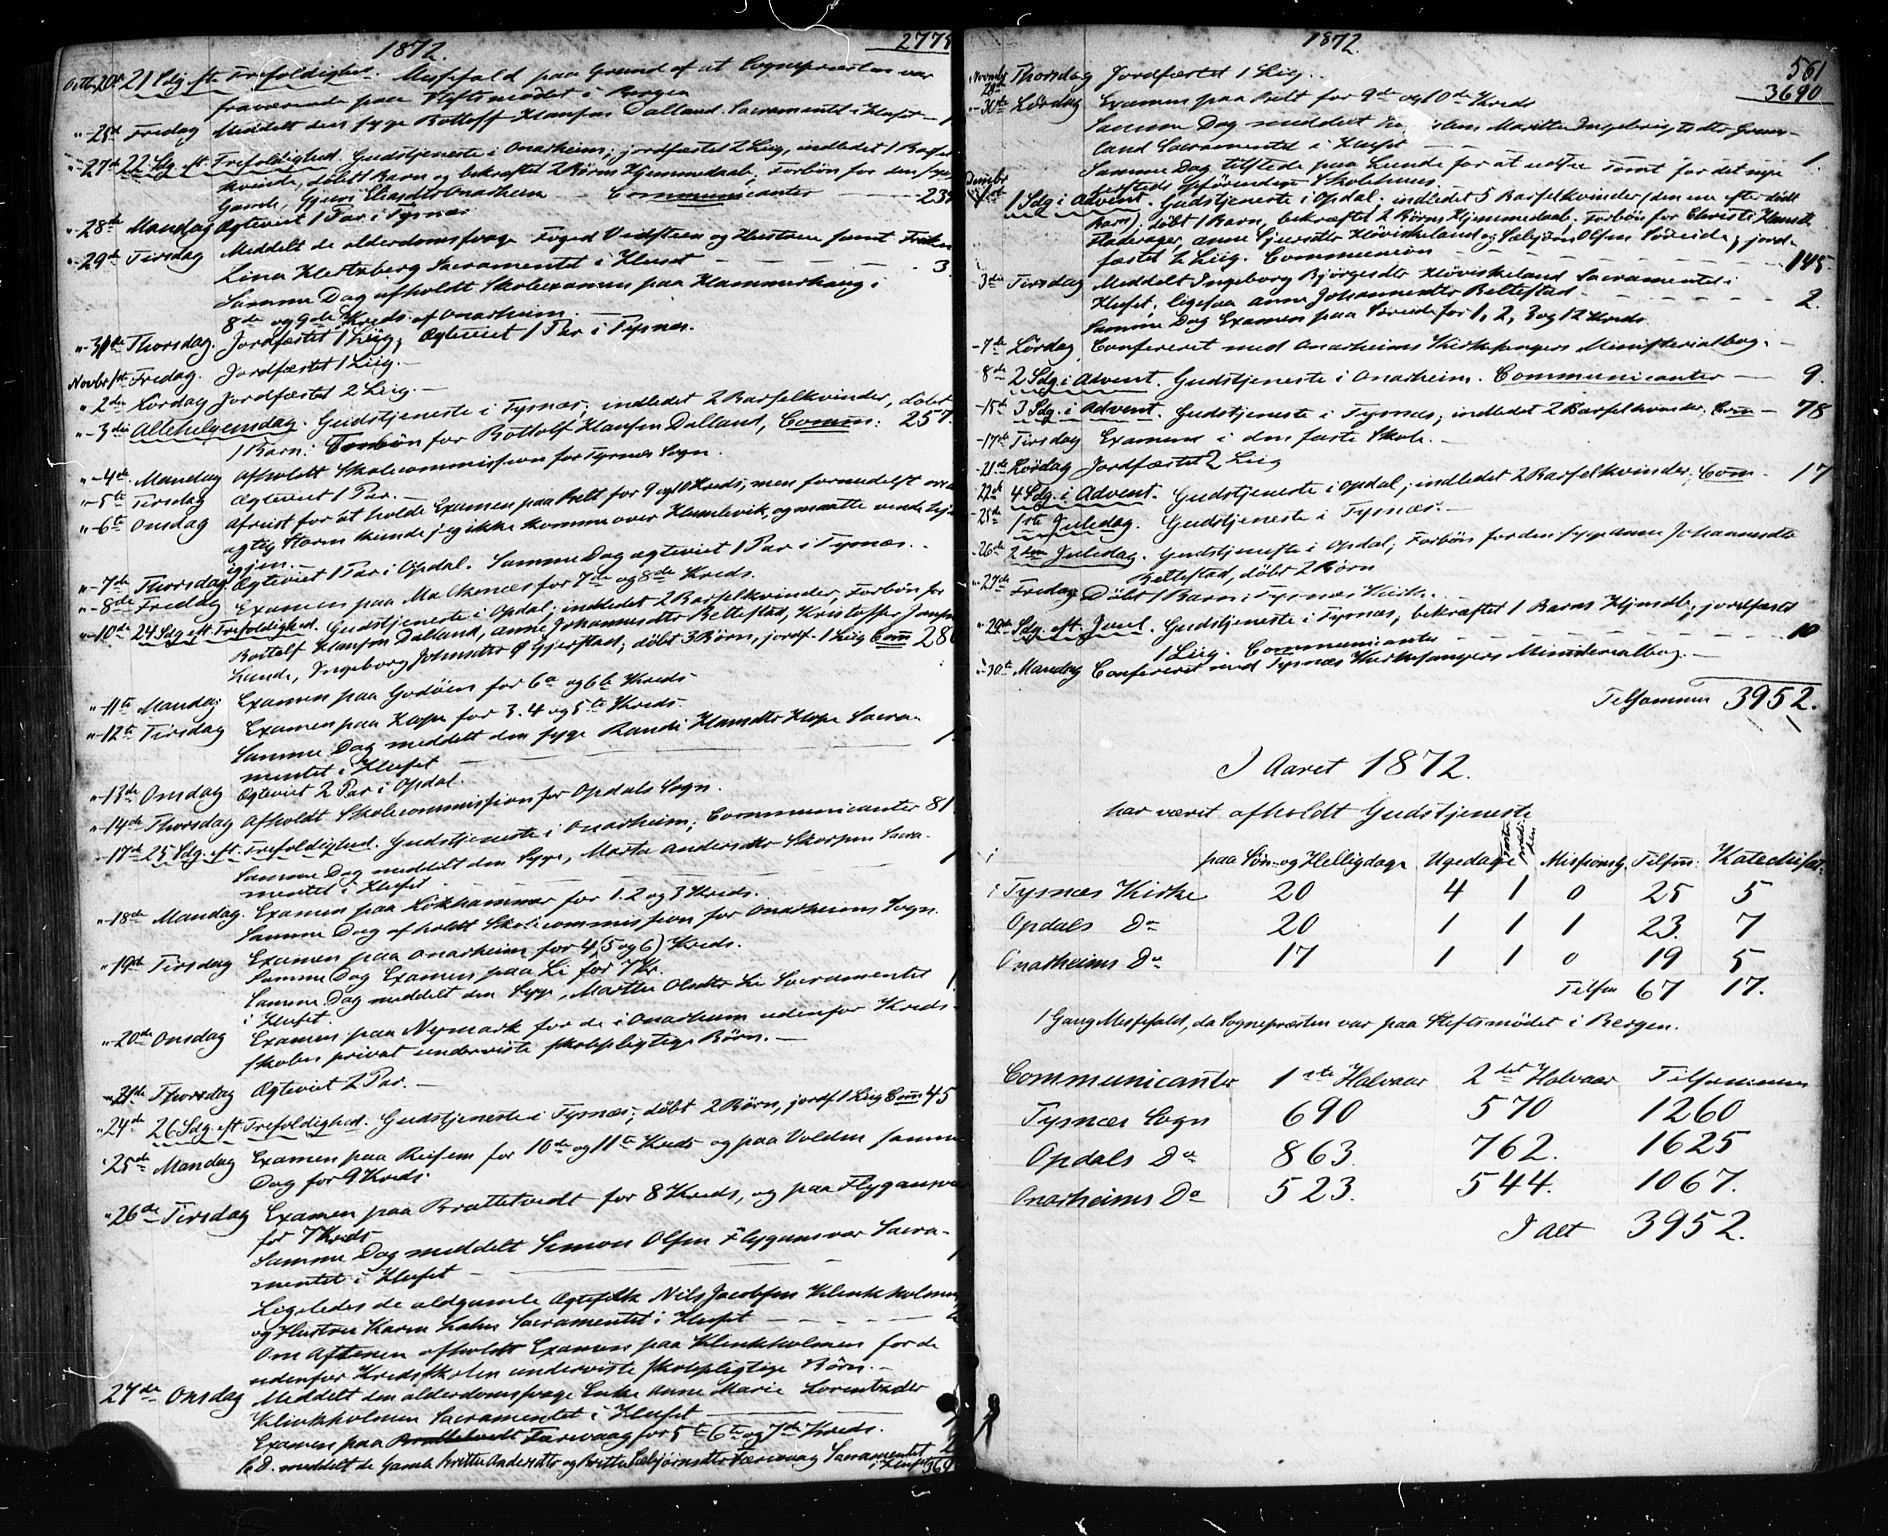 1872.
2775
Octbr 20de 21 Sdg. eft. Trefoldighed. Messefald paa Grund af at Sognepræsten var
fraværende paa Stiftsmødet i Bergen
"-25de Fredag Meddelt den syge Bottolf Hansen Dalland Sacramentet i Huset
"-27de 22 Sdg. eft. Trefoldighed. Gudstjeneste i Onarheim; jordfæstet 2 Liig, indledet 1 Barsel-
kvinde, døbt 1 Barn og bekræftet 2 Børns Hjemmedaab. Forbøn for den syge
Onarheim Communicanter
"-28de Mandag Ægteviet 1 Par i Tysnæs
"-29de Tirsdag Meddelt de alderdomssvage Foged Vedsteen og Hustrue samt Frøken
Lina Hertzberg Sacramentet i Huset 3.
Samme Dag afholdt Skoleexamen paa Hammerhaug i
8de og 9de Kreds af Onarheim.
"-31te Thorsdag. Jordfæstet 1 Liig; Ægteviet 1 Par i Tysnes.
Novbr 1ste Fredag. Jordfæstet 1 Liig.
"-2den Lørdag Jordfæstet 2 Liig.
"-3die Allehelgensdag. Gudstjeneste i Tysnæs; indledet 2 Barselkvinder, døbt
1 Barn. Forbøn for Bottolf Hansen Dalland, Comm: 257.
"-4de Mandag Afholdt Skolecommission for Tysnæs Sogn.
"-5te Tirsdag Ægteviet 1 Par.
"-6te Onsdag Afreist for at holde Examen paa Velt for 9 og 10 Kreds, men formedelst
Storm kunde jeg ikke komme over Humlevik, og maatte vende
igjen. Samme Dag ægteviet 1 Par i Tysnæs.
"-7de Thorsdag Ægteviet 1 Par i Opdal.
"-8de Fredag Examen paa Malkenæs for 7de og 8de Kreds.
"-10de 24 Sdg. eft. Trefoldighed. Gudstjeneste i Opdal; indledet 2 Barselkvinder, Forbøn for
Bottolf Hansen Dalland, Anne Johannesdtr Beltestad, Kristoffer
Lunde, Ingeborg Johnsdtr Gjerstad; døbt 3 Børn, jordf. 1 Liig Com 28
"-11te Mandag Examen paa Godøen for 6a og 6b Kreds
"-12te Tirsdag Examen paa Hope for 3. 4 og 5te Kreds.
Samme Dag meddelt den syge Randi Hansdtr Hope Sacra-
mentet i Huset
"-13de Onsdag Ægteviet 2 Par i Opdal.
"-14de Thorsdag Afholdt Skolecommission for Opdals Sogn.
"-17de 25 Sdg. eft. Trefoldighed. Gudstjeneste i Onarheim; Communicanter 81
Samme Dag meddelt den Syge, Marta Andersdtr Skorpen Sacra-
mentet i Huset
"-18de Mandag. Examen paa Løkhammar for 1. 2 og 3 Kreds.
Samme Dag afholdt Skolecommission for Onarheims Sogn.
"-19de Tirsdag Examen paa Onarheim for 4, (5 og 6) Kreds.
Samme Dag Examen paa Li for 7 Kr.
Samme Dag meddelt den Syge, Marthe Olsdtr Li Sacramentet
i Huset.
"-20de Onsdag Examen paa Nymark for de i Onarheim udenfor Kreds-
skolen privat underviste skolepligtige Børn.
"-21de Thorsdag Ægteviet 2 Par.
"24de 26 Sdg. eft. Trefoldighed. Gudstjeneste i Tysnæs; døbt 2 Børn, jordf 1 Liig Com 45
"25de Mandag Examen paa Reisem for 10de og 11te Kreds og paa Volden samme
Dag for 9 Kreds.
"26de Tirsdag Examen paa Brattetvedt for 8 Kreds, og paa Flygansvær
for 7 Kreds
Samme Dag meddelt Simon Olsen Flygansvær Sacra-
mentet i Huset
Ligeledes de aldgamle Ægtefolk Nils Jacobsen Klinkholmen
og Hustrue Karen Sacramentet i Huset
Om Aftenen afholdt Examen paa Klinkholmen for de
udenfor Kredsskolen underviste skolepligtige Børn.
27de Onsdag Meddelt den alderdomssvage Enke Anne Marie Lorentzdtr
Klinkholmen Sacramentet i Huset
Examen paa Brattetvedt Færevaag for 5te 6te og 7de Kreds.
S.D. meddelt de Gamle Britte Andersdtr og Britte Sæbjørnsdtr Færevaag Sacramentet 2
i Huset 369
1872.
561
3690
Novembr 28de Thorsdag Jordfæstet 1 Liig.
"-30te Lørdag Examen paa Velt for 9de og 10de Kreds
Samme Dag meddelt Maritte Ingebrigtsdtr
land Sacramentet i Huset 1.
Samme Dag tilstede paa Lunde for at udsee Tomt for det nye
Skolehuus.
Decmbr 1ste 1 Sdg. i Advent. Gudstjeneste i Opdal; indledet 5 Barselkvinder (den ene efter dødt
Barn), døbt 1 Barn, bekræftet 2 Børns Hjemmedaab. Forbøn for Christi
Anne Sjursdtr Høviskeland og Sæbjørn Olsen Søreide; jord-
fæstet 2 Liig. Communion 145
3die Tirsdag Meddelt Ingeborg Bjørgesdtr Høviskeland Sacramentet i
Huset, ligesaa Anne Johannesdtr Beltestad 2.
Samme Dag Examen paa Søreide for 1, 2, 3 og 12 Kreds.
-7de Lørdag Confereret med Onarheims Kirkesangers Ministerialbog.
8de 2 Sdg. i Advent. Gudstjeneste i Onarheim. Communicanter 9.
-15de 3 Sdg. i Advent. Gudstjeneste i Tysnæs; indledet 2 Barselkvinder. Com 78
-17de Tirsdag Examen i den faste Skole.
-21de Lørdag Jordfæstet 2 Liig
22de 4 Sdg. i Advent. Gudstjeneste i Opdal; indledet 2 Barselkvinder. Com 17
-25de 1ste Juledag. Gudstjeneste i Tysnæs.
-26de 2den Juledag. Gudstjeneste i Opdal; Forbøn for den syge Anne Johannesdtr
Beltestad, døbt 2 Børn
"-27de Fredag Døbt 1 Barn i Tysnæs Kirke.
"-29de Sdg. eft. Juul. Gudstjeneste i Tysnæs, bekræftet 1 Barns Hjmdb, jordfæstet
1 Liig. Communicanter 10
"-30te Mandag Confereret med Tysnæs Kirkesangers Ministerialbog.
Tilsammen 3952.
I Aaret 1872.
har været afholdt Gudstjeneste
paa Søn- og Helligdage Ugedage Missionsg. Tilsm: Katechisat.
Tysnæs Kirke 20 4 1 0 25 5
Opdals Do 20 1 1 1 23. 7
Onarheims Do 17 1 1 0 19 5
Tilsm 67 17.
1 Gang Messefald, da Sognepræsten var paa Stiftsmødet i Bergen.
Communicanter 1ste Halvaar 2det Halvaar Tilsammen
Tysnæs Sogn 690 570 1260
Opdals Do 863. 762. 1625
Onarheims Do 523. 544. 1067.
I Alt 3952.